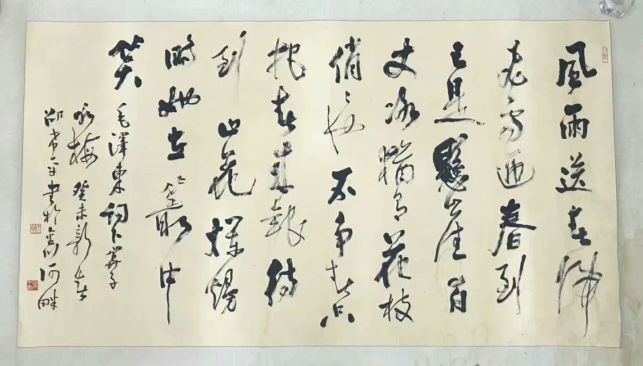 風雨送春歸
飛雪迎春到
已是懸崖百
丈冰猶有花枝
俏〻也不爭春只
把春來報待
到山花爛熳
時她在叢中
笑
毛澤東詞卜算子
咏梅 癸未新春
書於 河畔